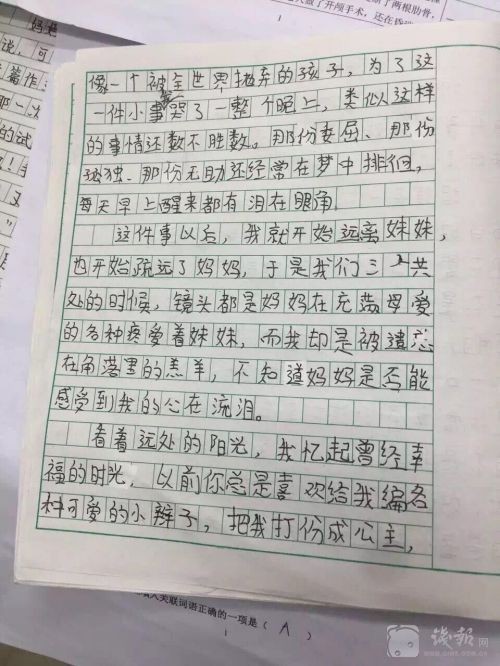 了两根肋骨，
做了开颅手术，还在昏
妈老
说，可
篇作
那一次
的试
像一个被全世界抛弃的孩子，为了这
一件小事哭了一整个晚上，类似这样
的事情还数不胜数。那份委屈、那份
孤独、那份无助还经常在梦中排徊，
每天早上醒来都有泪在眼角。
这件事以后，我就开始远离妹妹，
也开始疏远了妈妈，于是我们三人共
处的时候，镜头都是妈妈在充满母爱
的各种疼爱着妹妹，而我却是被遗忘
在角落里的羔羊，不知道妈妈是否能
感受到我的心在流泪。
看着远处的阳光，我忆起曾经幸
福的时光，以前你总是喜欢给我编各
种可爱的小辫子，把我打份成公主，
关联词语正确的一项是（ A ）
钱报网